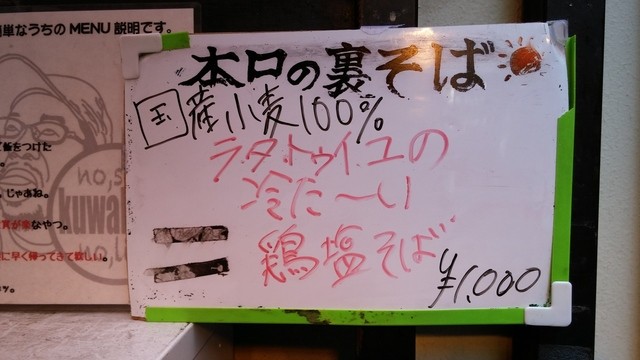 簡単なうちのMENU説明です。
本日の裏そば
国産小麦100%
ラタトゥイユの
冷た〜い
鶏塩そば
¥1,000
飯をつけた
じゃあね。
なやつ。
に早く帰ってきて欲しい。
no,s
kuwa
no,l